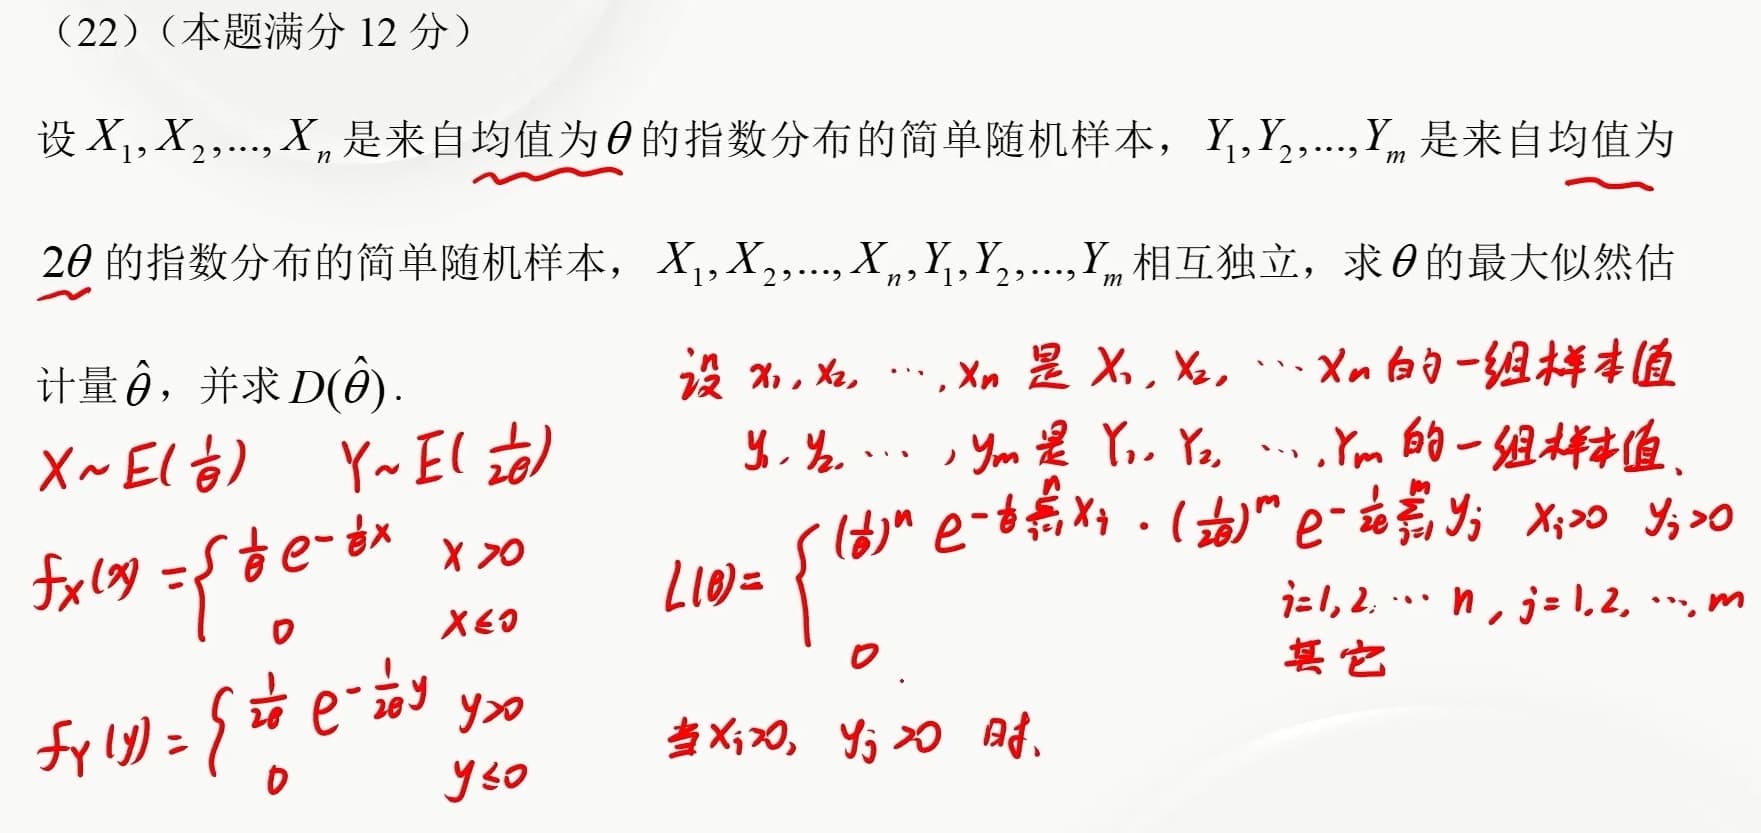 （22）（本题满分 12 分）
设 X₁, X₂, ..., Xₙ 是来自均值为 θ 的指数分布的简单随机样本， Y₁, Y₂, ..., Yₘ 是来自均值为
2θ 的指数分布的简单随机样本， X₁, X₂, ..., Xₙ, Y₁, Y₂, ..., Yₘ 相互独立，求 θ 的最大似然估
计量 θ̂ ，并求 D(θ̂) .
X ~ E(1/θ) Y ~ E(1/2θ)
f_X(x) = { 1/θ e^{-1/θ x} x>0
0 x≤0
f_Y(y) = { 1/2θ e^{-1/2θ y} y>0
0 y≤0
设 x₁, x₂, ⋯, xₙ 是 X₁, X₂, ⋯ Xₙ 的一组样本值
y₁, y₂, ⋯, yₘ 是 Y₁, Y₂, ⋯, Yₘ 的一组样本值、
L(θ) = { (1/θ)^n e^{-1/θ ∑_{i=1}^{n} x_i} · (1/2θ)^m e^{-1/2θ ∑_{j=1}^{m} y_j} x_i>0 y_j>0
i=1,2,⋯ n, j=1,2,⋯,m
0 其它
当 x_i>0, y_j>0 时、